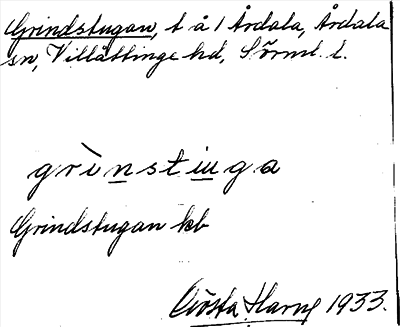 Grindstugan, t å 1 Årdala, Årdala
sn, Villåttinge hd, Sörml. l.
grìnstiuga
Grindstugan kb
Gösta Harne 1933.